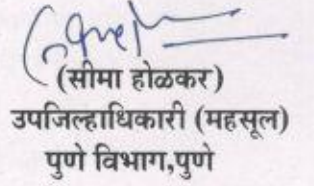 (सीमा होळकर)
उपजिल्हाधिकारी (महसूल)
पुणे विभाग,पुणे